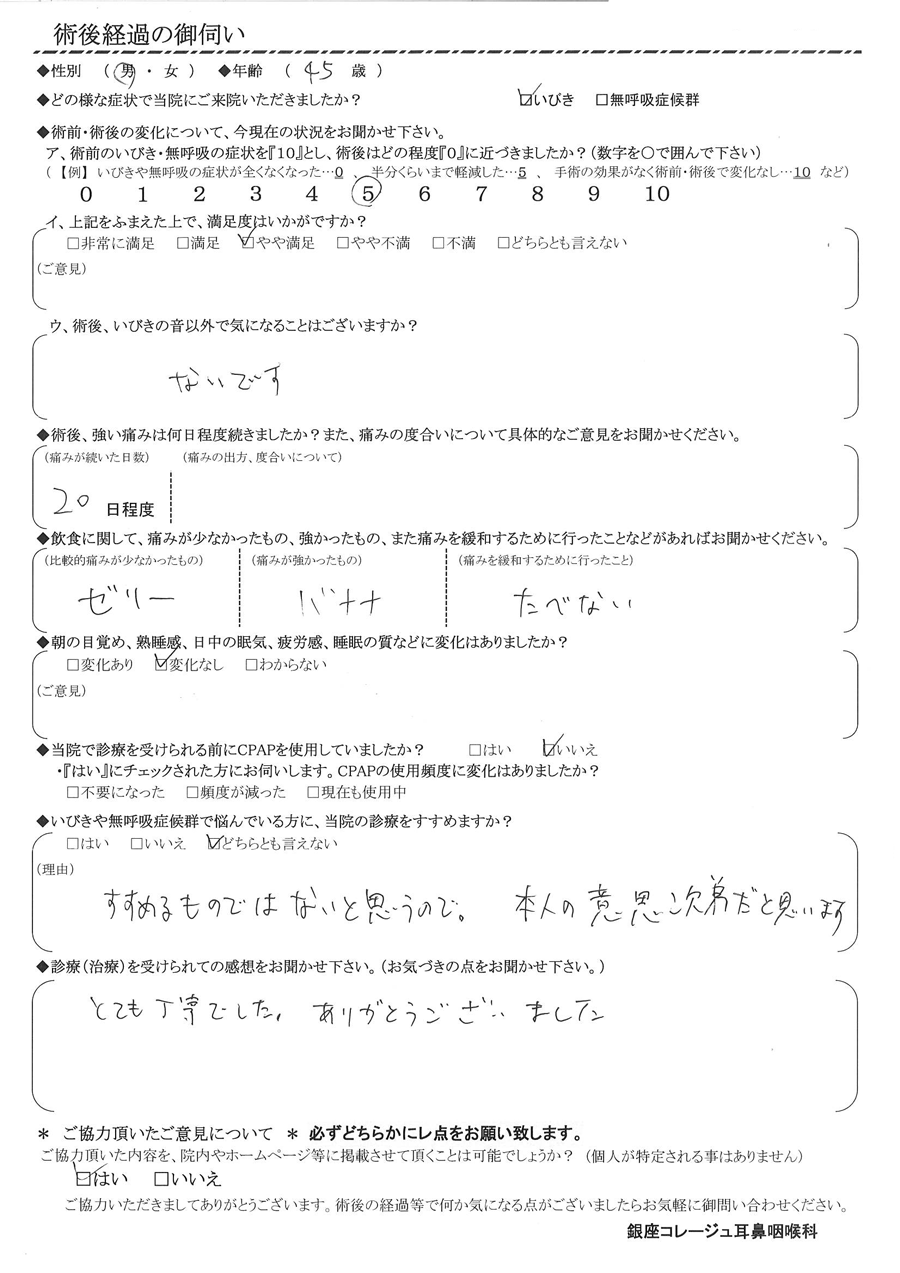 術後経過の御伺い
◆性別 (男・女) ◆年齢 (45 歳)
◆どの様な症状で当院にご来院いただきましたか? ☑いびき □無呼吸症候群
◆術前・術後の変化について、今現在の状況をお聞かせ下さい。
ア、術前のいびき・無呼吸の症状を『10』とし、術後はどの程度『0』に近づきましたか?(数字を○で囲んで下さい)
(【例】いびきや無呼吸の症状が全くなくなった…0 、半分くらいまで軽減した…5 、手術の効果がなく術前・術後で変化なし…10 など)
0 1 2 3 4 5 6 7 8 9 10
イ、上記をふまえた上で、満足度はいかがですか?
□非常に満足 □満足 ☑やや満足 □やや不満 □不満 □どちらとも言えない
(ご意見)
ウ、術後、いびきの音以外で気になることはございますか?
ないです
◆術後、強い痛みは何日程度続きましたか?また、痛みの度合いについて具体的なご意見をお聞かせください。
(痛みが続いた日数) (痛みの出方、度合いについて)
20 日程度
◆飲食に関して、痛みが少なかったもの、強かったもの、また痛みを緩和するために行ったことなどがあればお聞かせください。
(比較的痛みが少なかったもの) (痛みが強かったもの) (痛みを緩和するために行ったこと)
ゼリー バナナ たべない
◆朝の目覚め、熟睡感、日中の眠気、疲労感、睡眠の質などに変化はありましたか?
□変化あり ☑変化なし □わからない
(ご意見)
◆当院で診療を受けられる前にCPAPを使用していましたか? □はい ☑いいえ
・『はい』にチェックされた方にお伺いします。CPAPの使用頻度に変化はありましたか?
□不要になった □頻度が減った □現在も使用中
◆いびきや無呼吸症候群で悩んでいる方に、当院の診療をすすめますか?
□はい □いいえ ☑どちらとも言えない
(理由)
すすめるものではないと思うので。 本人の意思次第だと思います
◆診療(治療)を受けられての感想をお聞かせ下さい。(お気づきの点をお聞かせ下さい。)
とても丁寧でした。ありがとうございました
* ご協力頂いたご意見について * 必ずどちらかにレ点をお願い致します。
ご協力頂いた内容を、院内やホームページ等に掲載させて頂くことは可能でしょうか?(個人が特定される事はありません)
☑はい □いいえ
ご協力いただきましてありがとうございます。術後の経過等で何か気になる点がございましたらお気軽に御問い合わせください。
銀座コレージュ耳鼻咽喉科